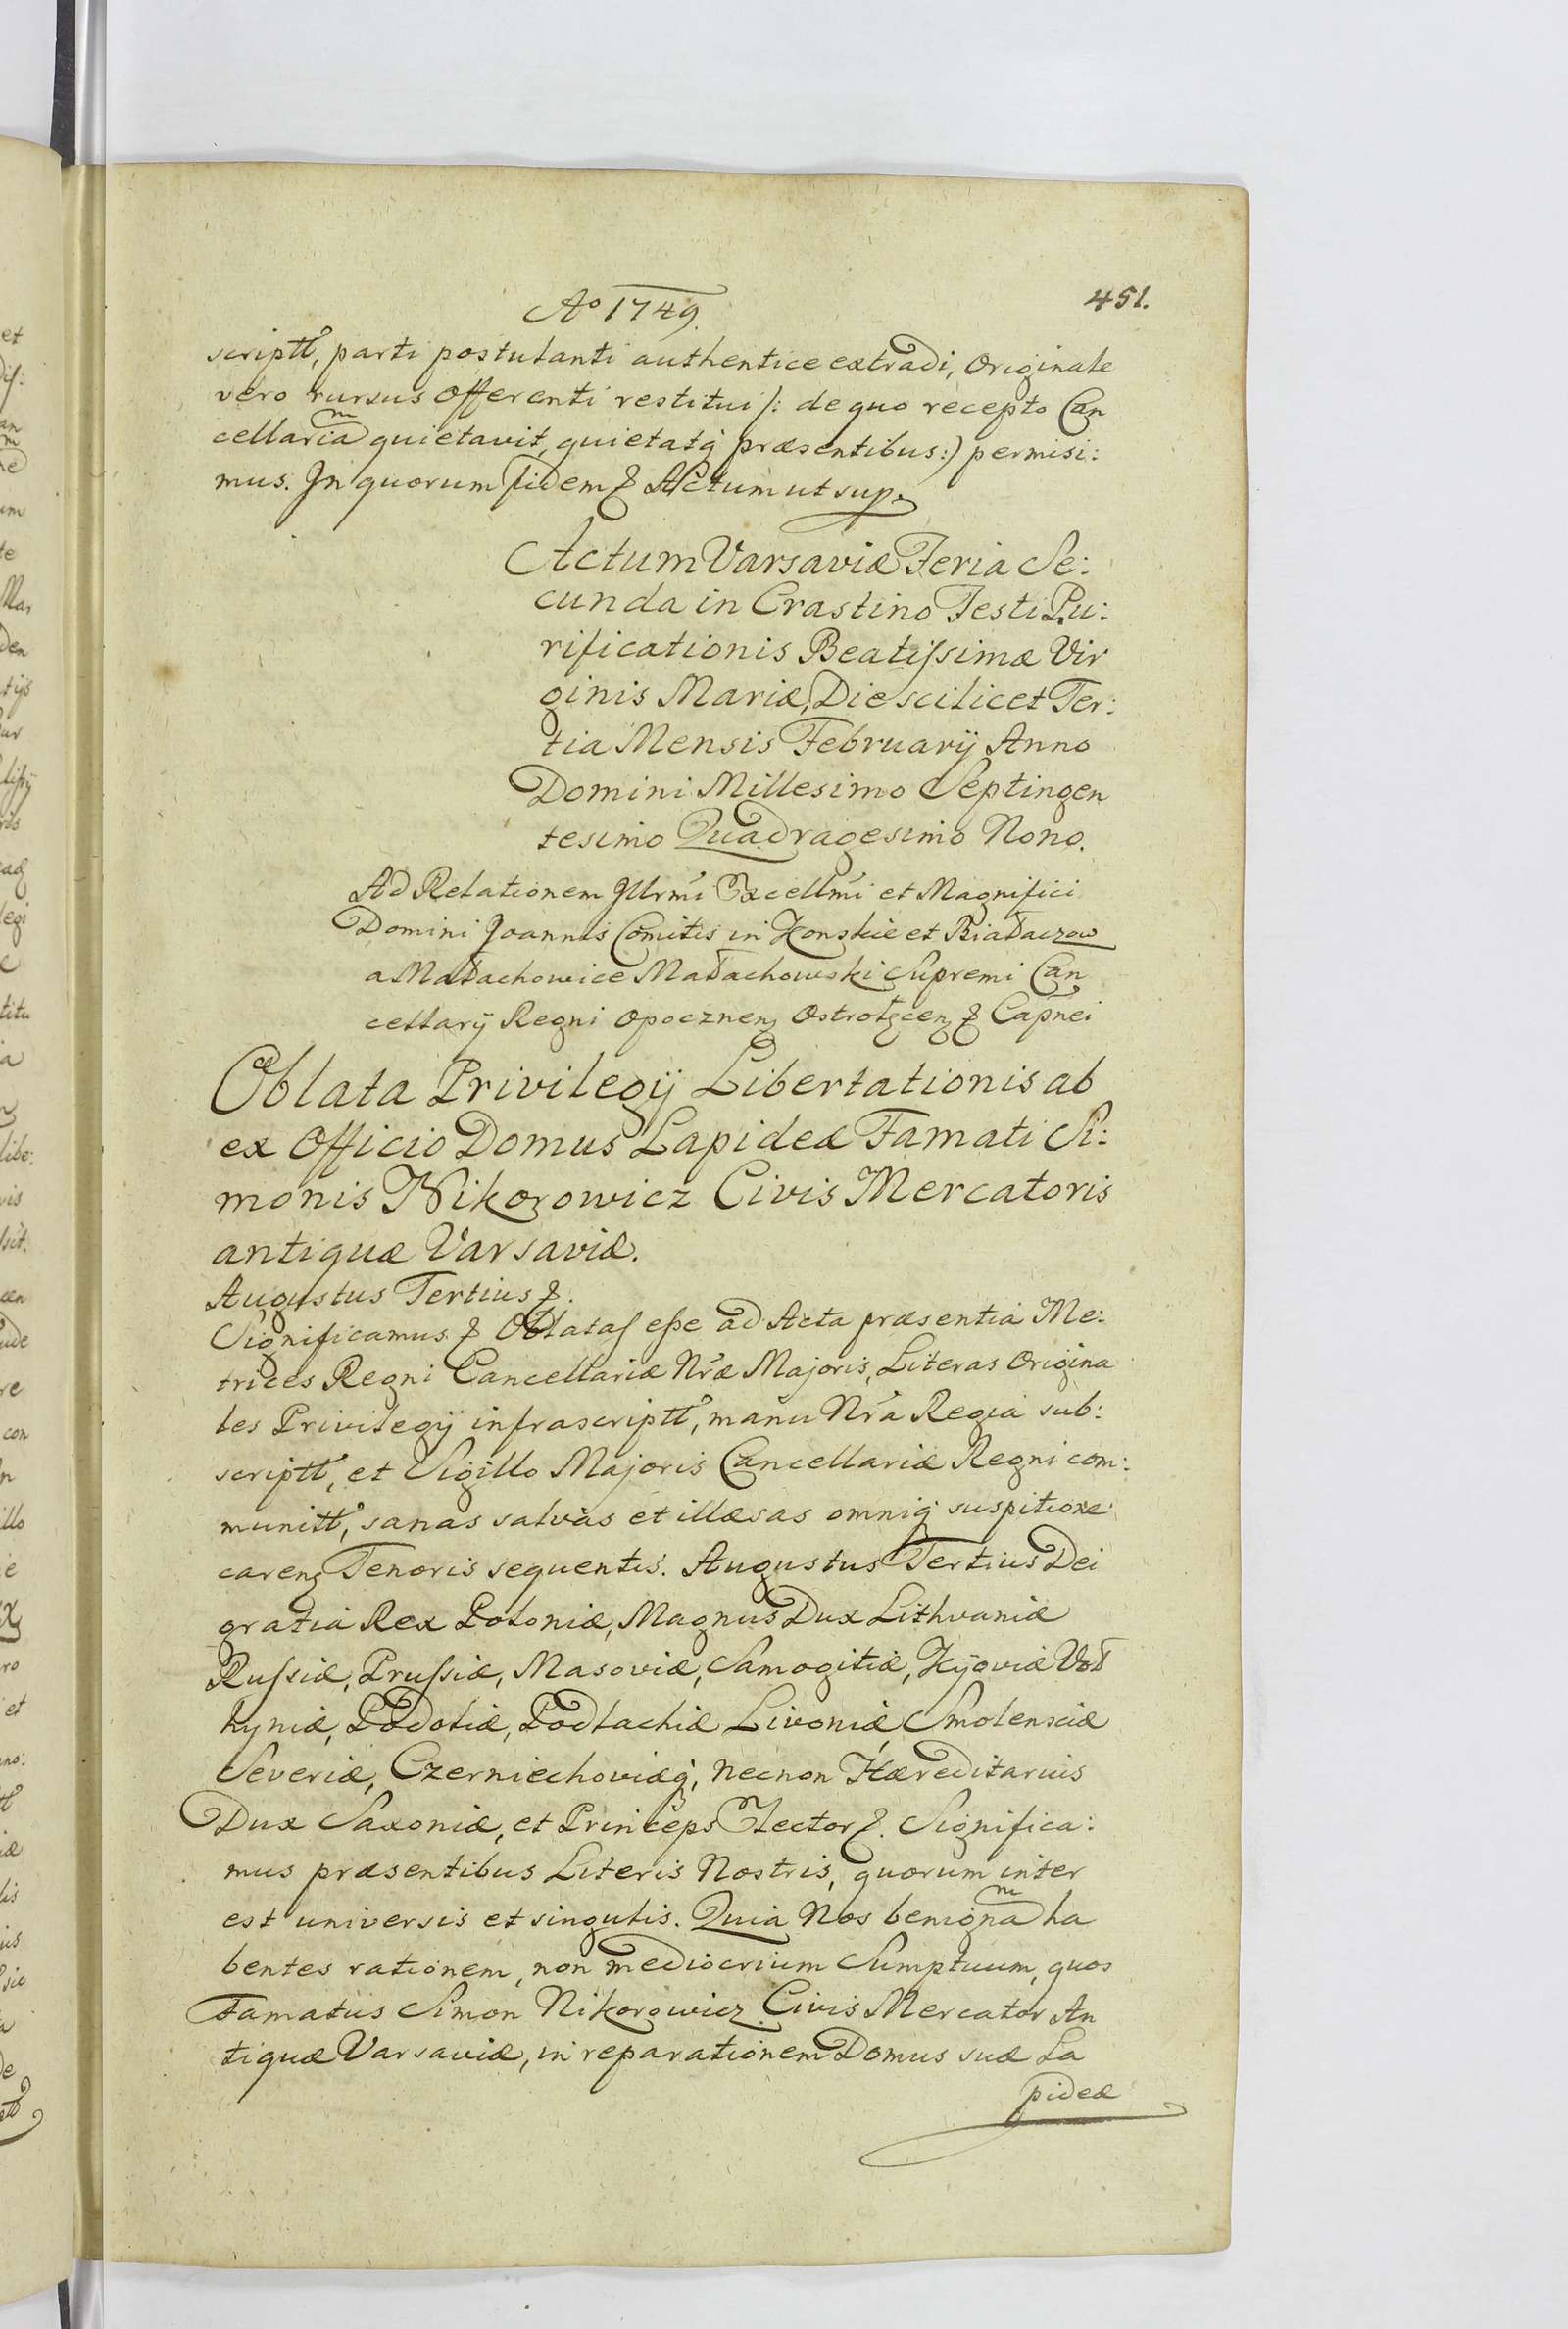 Aº 1749.
451.
scriptt, parti postulanti authentice extradi, Originale
vero rursus Offerenti restitui /: de quo recepto Can
cellariam quietavit, quietatq́ præsentibus :) permisi:
mus. In quorum fidem & Actum ut sup.
Actum Varsaviæ Feria Se:
cunda in Crastino Festi Pu:
rificationis Beatiſsimæ Vir
ginis Mariæ, Die scilicet Ter:
tia Mensis Februarÿ Anno
Domini Millesimo Septingen
tesimo Quadragesimo Nono.
Ad Relationem Illrmi Excellmi et Magnifici
Domini Joannis Comitis in Konskie et Białaczow
a Małachowice Małachowski Supremi Can
cellarÿ Regni Opocznen Ostrołęcen & Capnei
Oblata Privilegÿ Libertationis ab
ex Officio Domus Lapideæ Famati Si:
monis Nikorowicz Civis Mercatoris
antiquæ Varsaviæ.
Augustus Tertius &.
Significamus & Oblatas eſse ad Acta præsentia Me:
trices Regni Cancellariæ Nræ Majoris, Literas Origina
les Privilegÿ infrascriptt, manu Nra Regia sub:
scriptt, et Sigillo Majoris Cancellariæ Regni com:
munitt, sanas salvas et illæsas omniq́ suspitione
caren Tenoris sequentis. Augustus Tertius Dei
gratia Rex Poloniæ, Magnus Dux Lithvaniæ
Ruſsiæ, Pruſsiæ, Masoviæ, Samogitiæ, Kÿoviæ Vol
hyniæ, Podoliæ, Podlachiæ Livoniæ, Smolensciæ
Severiæ, Czerniechoviæq́, necnon Hæreditarius
Dux Saxoniæ, et Princeps Elector &. Significa:
mus præsentibus Literis Nostris, quorum inter
est universis et singulis. Quia Nos benignam ha
bentes rationem, non mediocrium Sumptuum, quos
Famatus Simon Nikorowicz Civis Mercator An
tiquæ Varsaviæ, in reparationem Domus suæ La
pideæ